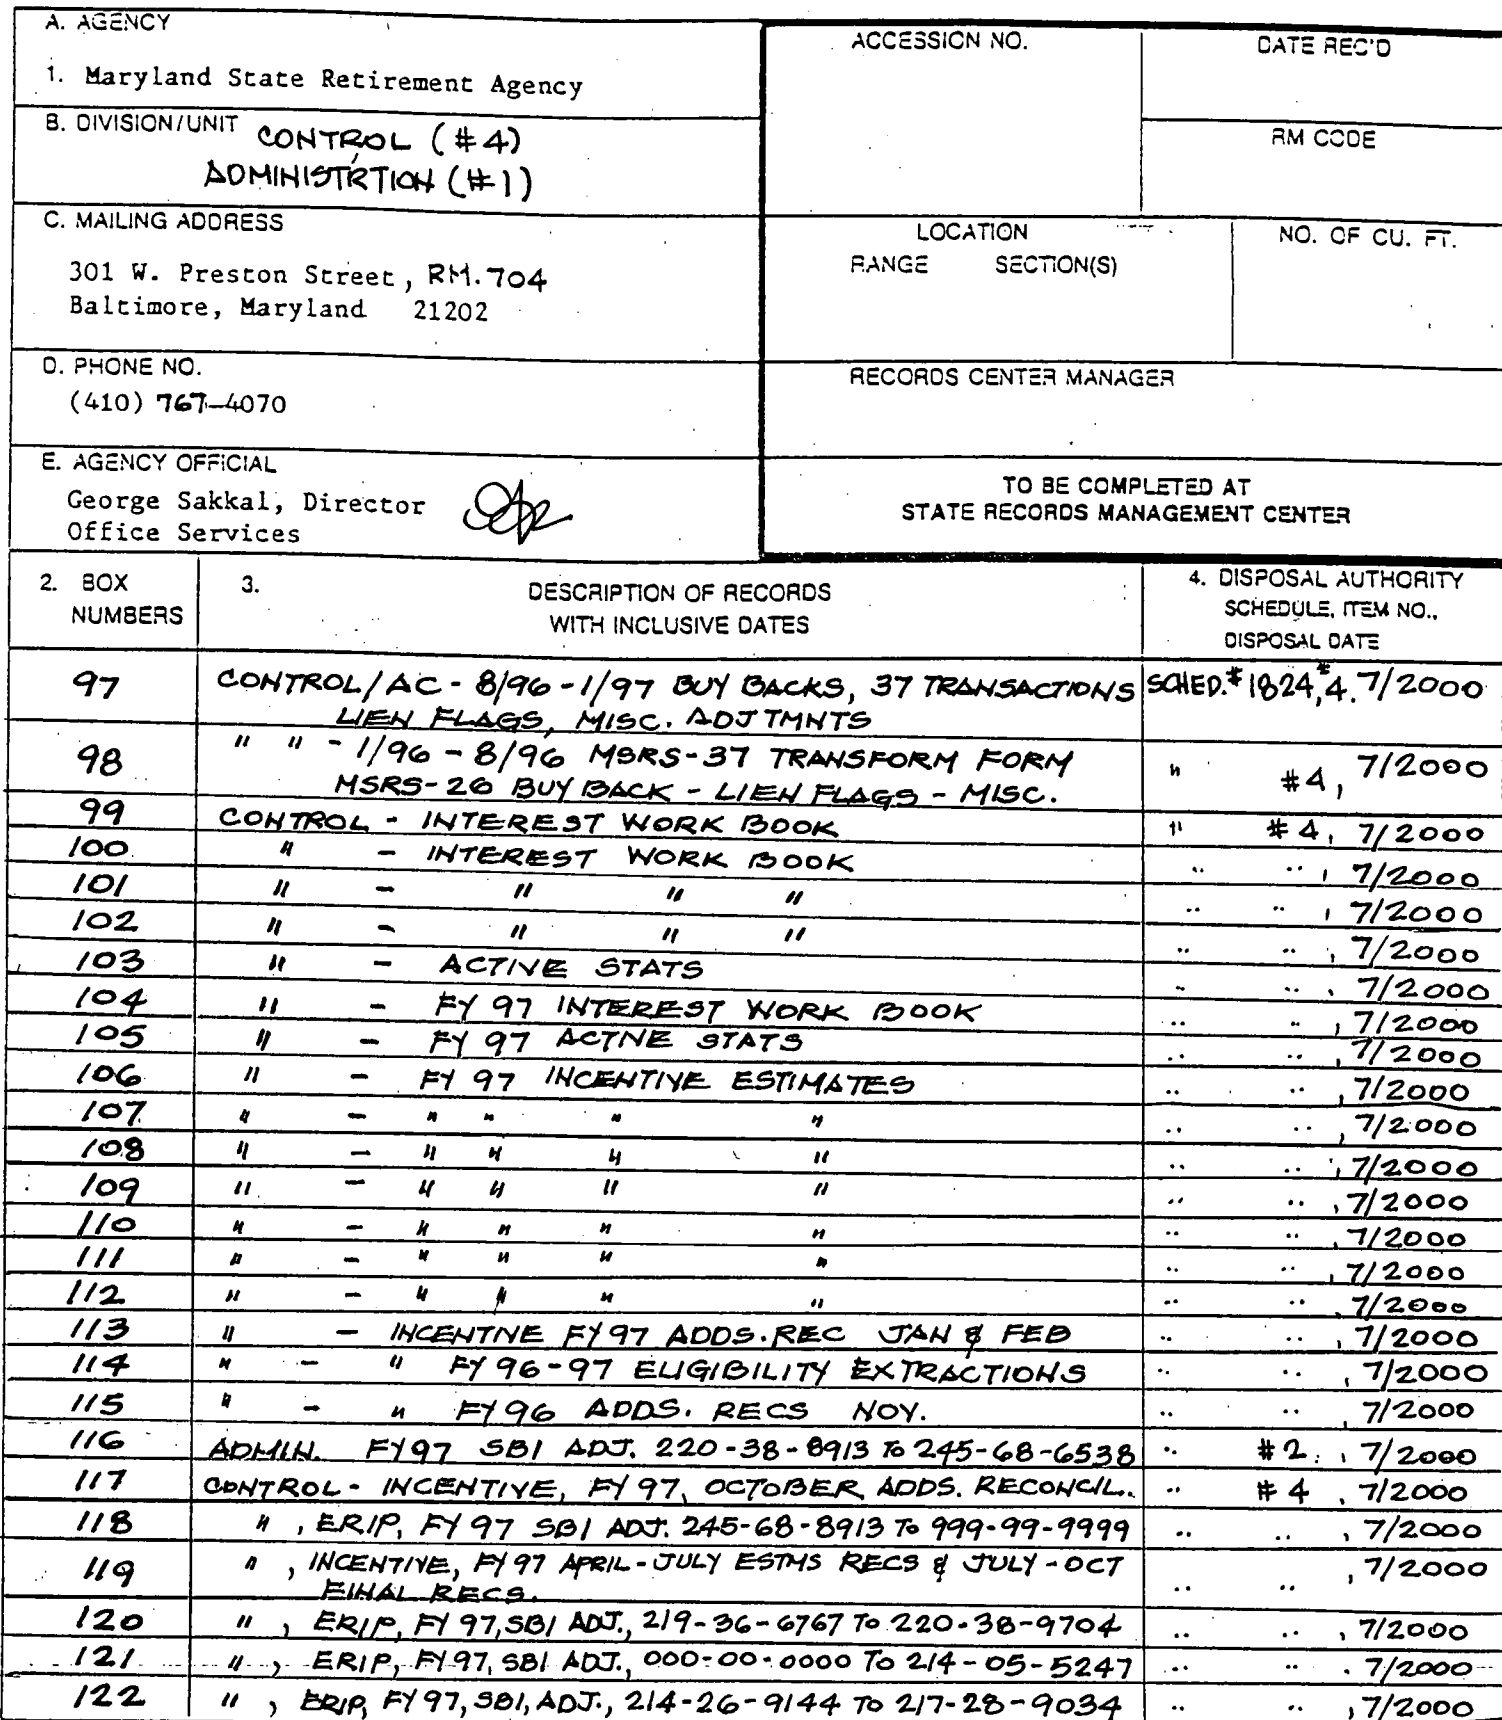 A. AGENCY
1. Maryland State Retirement Agency
B. DIVISION/UNIT CONTROL (#4)
ADMINISTRTION (#1)
C. MAILING ADDRESS
301 W. Preston Street, RM. 704
Baltimore, Maryland 21202
D. PHONE NO.
(410) 767-4070
E. AGENCY OFFICIAL
George Sakkal, Director
Office Services
ACCESSION NO.
DATE REC'D
RM CODE
LOCATION
RANGE SECTION(S)
NO. OF CU. FT.
RECORDS CENTER MANAGER
TO BE COMPLETED AT
STATE RECORDS MANAGEMENT CENTER
2. BOX NUMBERS
3. DESCRIPTION OF RECORDS
WITH INCLUSIVE DATES
4. DISPOSAL AUTHORITY
SCHEDULE, ITEM NO.,
DISPOSAL DATE
97 CONTROL/AC - 8/96 - 1/97 BUY BACKS, 37 TRANSACTIONS SCHED.# 1824, #4. 7/2000
LIEN FLAGS, MISC. ADJTMNTS
98 " " - 1/96 - 8/96 MSRS-37 TRANSFORM FORM " #4, 7/2000
MSRS-26 BUY BACK - LIEN FLAGS - MISC.
99 CONTROL - INTEREST WORK BOOK " #4, 7/2000
100 " - INTEREST WORK BOOK " " , 7/2000
101 " - " " " " " , 7/2000
102 " - " " " " " , 7/2000
103 " - ACTIVE STATS " " , 7/2000
104 " - FY 97 INTEREST WORK BOOK " " , 7/2000
105 " - FY 97 ACTIVE STATS " " , 7/2000
106 " - FY 97 INCENTIVE ESTIMATES " " , 7/2000
107 " - " " " " " " , 7/2000
108 " - " " " " " " , 7/2000
109 " - " " " " " " , 7/2000
110 " - " " " " " " , 7/2000
111 " - " " " " " " , 7/2000
112 " - " " " " " " , 7/2000
113 " - INCENTIVE FY 97 ADDS. REC JAN & FEB " " , 7/2000
114 " - " FY 96-97 ELIGIBILITY EXTRACTIONS " " , 7/2000
115 " - " FY 96 ADDS. RECS NOV. " " , 7/2000
116 ADMIN. FY 97 SBI ADJ. 220-38-8913 TO 245-68-6538 " #2, 7/2000
117 CONTROL - INCENTIVE, FY 97, OCTOBER ADDS. RECONCIL. " #4, 7/2000
118 " , ERIP, FY 97 SBI ADJ. 245-68-8913 TO 999-99-9999 " " , 7/2000
119 " , INCENTIVE, FY 97 APRIL-JULY ESTMS RECS & JULY-OCT " " , 7/2000
FINAL RECS.
120 " , ERIP, FY 97, SBI ADJ., 219-36-6767 TO 220-38-9704 " " , 7/2000
121 " , ERIP, FY 97, SBI ADJ., 000-00-0000 TO 214-05-5247 " " . 7/2000
122 " , ERIP, FY 97, SBI, ADJ., 214-26-9144 TO 217-28-9034 " " , 7/2000